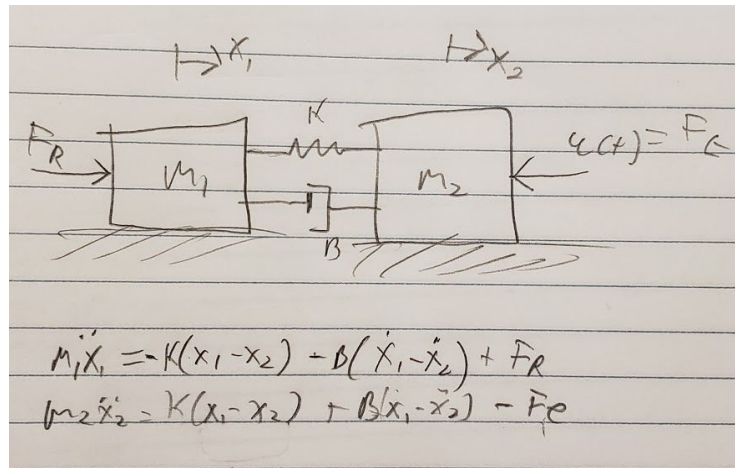 x₁ x₂
K
F_R M₁ m₂ u(t) = F_e
B
M₁ẍ₁ = -K(x₁-x₂) - B(ẋ₁-ẋ₂) + F_R
m₂ẍ₂ = K(x₁-x₂) + B(ẋ₁-ẋ₂) - Fe